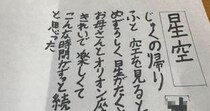 星空
じゅくの帰り
ふと空を見ると
めずらしく星がたくさ
お母さんとオリオン座
きれいで楽しくて
こんな時間がずっと続
と思った。